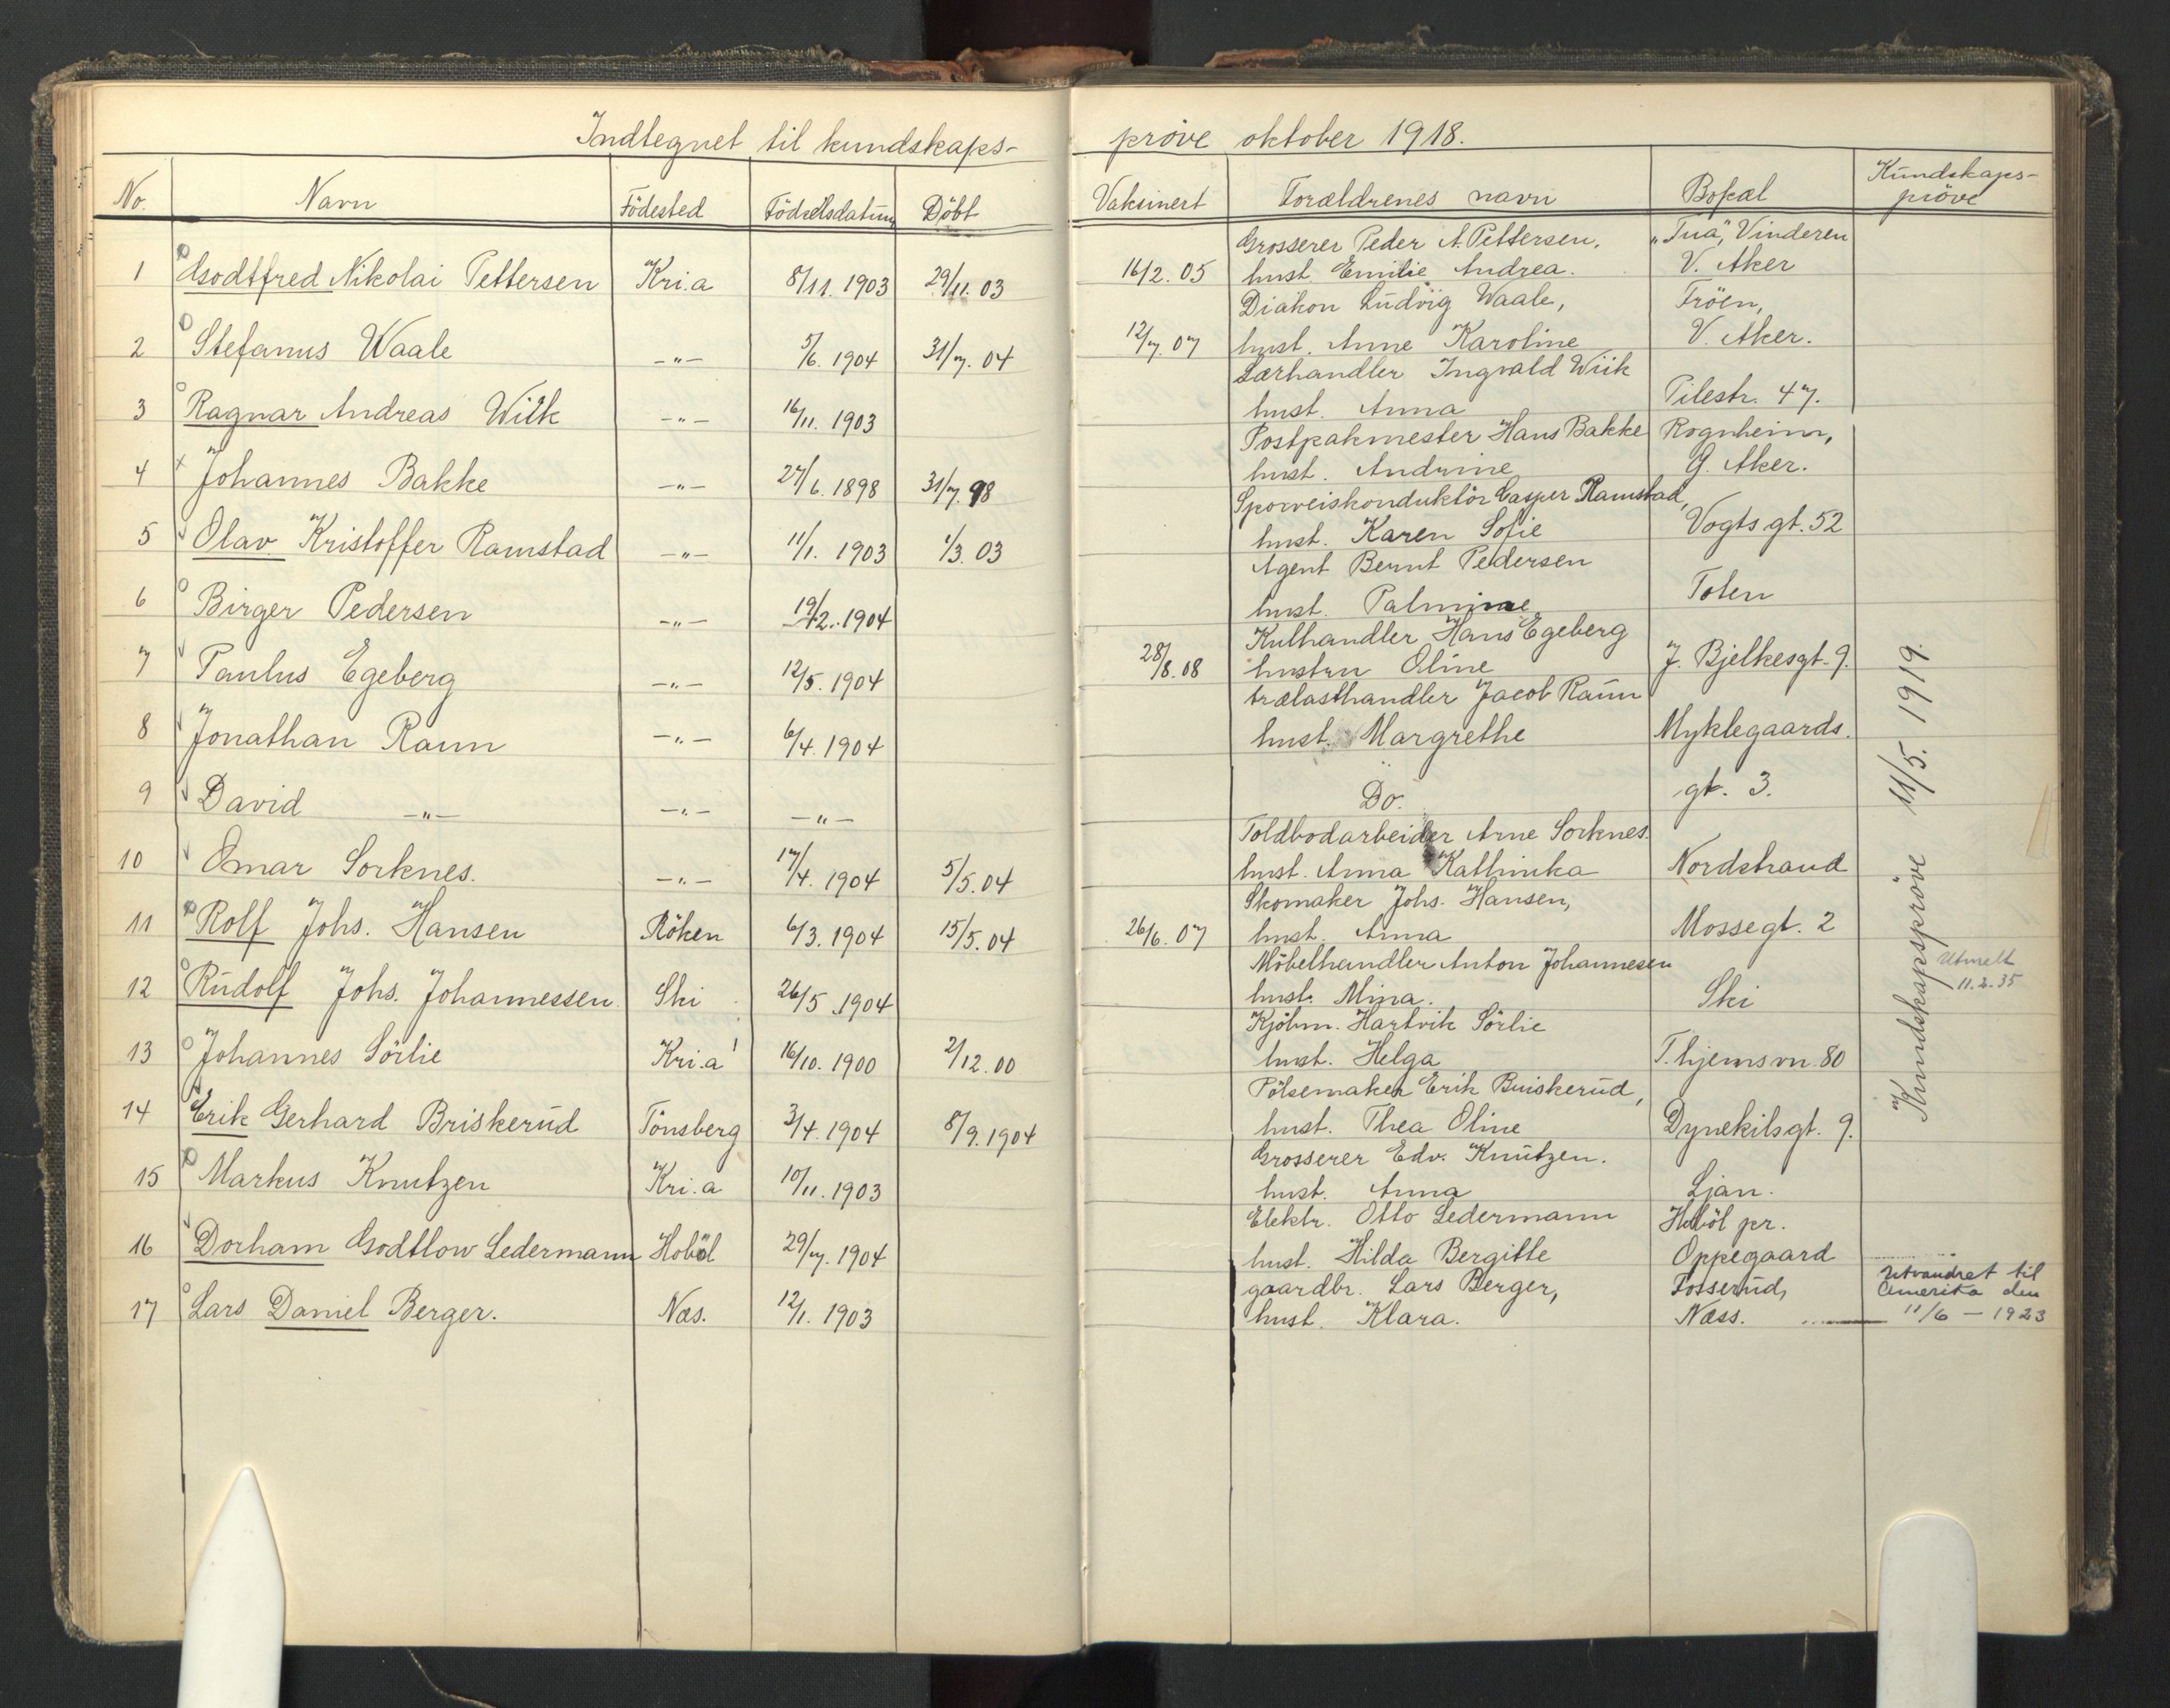 Indtegnet til kundskaps-
No. Navn Födested Födselsdatum Döbt
1 Godtfred Nikolai Pettersen Kri.a 8/11. 1903 29/11. 03
2 Stefanus Waale -"- 5/6. 1904 31/7. 04
3 Ragnar Andreas Wiik -"- 16/11. 1903
4 Johannes Bakke -"- 27/6. 1898 31/7. 98
5 Olav Kristoffer Ramstad -"- 11/1. 1903 1/3. 03
6 Birger Pedersen -"- 19/2. 1904
7 Paulus Egeberg -"- 12/5. 1904
8 Jonathan Raun -"- 6/4. 1904
9 David -"- -"- -"-
10 Omar Sorknes. -"- 17/4. 1904 5/5. 04
11 Rolf Johs. Hansen Röken 6/3. 1904 15/5. 04
12 Rudolf Johs. Johannessen Ski 26/5. 1904
13 Johannes Sörlie Kri.a 16/10. 1900 2/12. 00
14 Erik Gerhard Briskerud Tönsberg 3/4. 1904 8/9. 1904
15 Markus Knutzen Kri.a 10/11. 1903
16 Dorham Godtlow Ledermann Hoböl 29/7. 1904
17 Lars Daniel Berger. Næs. 12/1. 1903
pröve oktober 1918.
Vaksinert Forældrenes navn Bopæl Kundskaps-
pröve
Grosserer Peder A. Pettersen, "Tua", Vinderen
16/2. 05 hust. Emilie Andrea. V. Aker
Diakon Ludvig Waale, Fröen,
12/7. 07 hust. Anne Karoline V. Aker.
Lærhandler Ingvald Wiik
hust. Anna Pilestr. 47.
Postpakmester Hans Bakke Rognheim,
hust. Andrine G. Aker.
Sporveiskonduktör Casper Ramstad,
hust. Karen Sofie Vogts gt. 52
Agent Bernt Pedersen
hust. Palmine Toten
Kulhandler Hans Egeberg
28/8. 08 hustru Oline J. Bjelkesgt. 9.
trælasthandler Jacob Raun
hust. Margrethe Myklegaards.
Do. gt. 3.
Toldbodarbeider Arne Sorknes.
hust. Anna Kathinka Nordstrand
Skomaker Johs. Hansen,
26/6. 07 hust. Anna Mossegt. 2
Möbelhandler Anton Johannesen
hust. Mina. Ski
Kjöbm. Hartvik Sörlie
hust. Helga T. hjemsvn. 80
Pölsemaker Erik Buiskerud,
hust. Thea Oline Dynekilsgt. 9.
Grosserer Edv. Knutzen.
hust. Anna Ljan.
Elektr. Otto Ledermann Hoböl pr.
hust. Hilda Bergitte Oppegaard
gaardbr. Lars Berger, Fosserud,
hust. Klara. Næss.
Kundskapspröve 11/5. 1919.
Utmelt
11.2.35
Utvandret til
Amerika den
11/6 - 1923